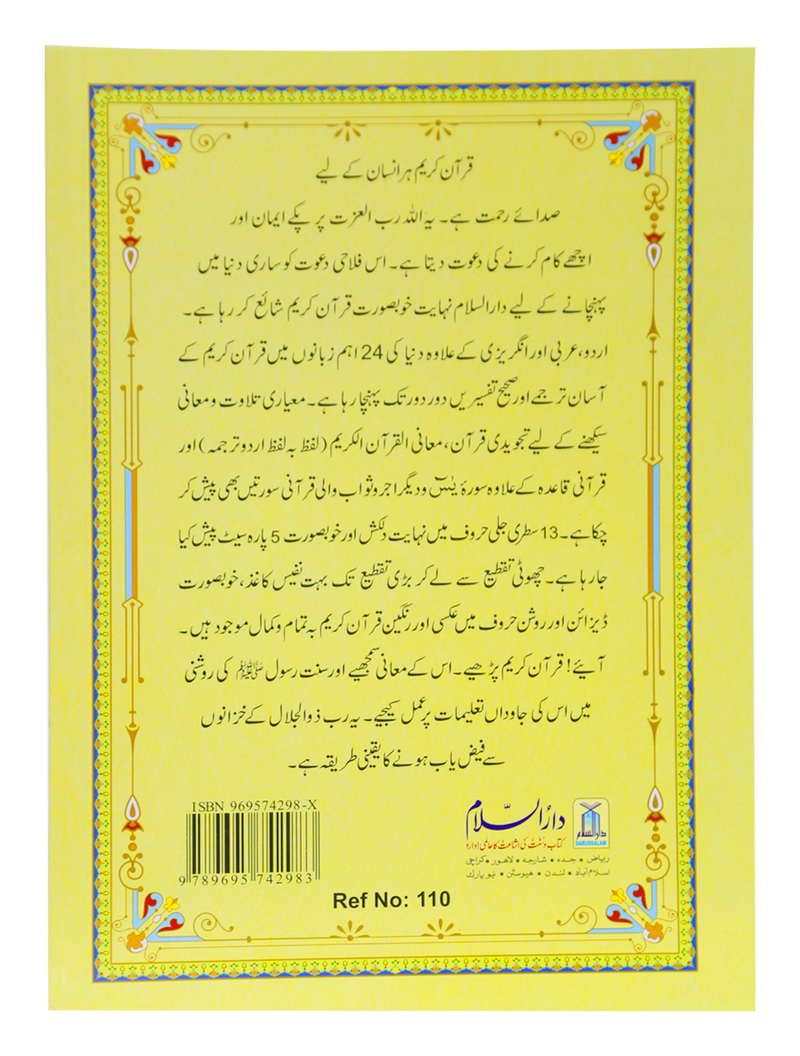 قرآن کریم ہر انسان کے لیے
صدائے رحمت ہے۔ یہ اللہ رب العزت پر پکے ایمان اور
اچھے کام کرنے کی دعوت دیتا ہے۔ اس فلاحی دعوت کو ساری دنیا میں
پہنچانے کے لیے دارالسلام نہایت خوبصورت قرآن کریم شائع کر رہا ہے۔
اردو، عربی اور انگریزی کے علاوہ دنیا کی 24 اہم زبانوں میں قرآن کریم کے
آسان ترجمے اور صحیح تفسیریں دور دور تک پہنچا رہا ہے۔ معیاری تلاوت و معانی
سیکھنے کے لیے تجویدی قرآن، معانی القرآن الکریم (لفظ بہ لفظ اردو ترجمہ) اور
قرآنی قاعدہ کے علاوہ سورۂ یٰسٓ و دیگر اجر و ثواب والی قرآنی سورتیں بھی پیش کر
چکا ہے۔ 13 سطری جلی حروف میں نہایت دلکش اور خوبصورت 5 پارہ سیٹ پیش کیا
جا رہا ہے۔ چھوٹی تقطیع سے لے کر بڑی تقطیع تک بہت نفیس کاغذ، خوبصورت
ڈیزائن اور روشن حروف میں عکسی اور رنگین قرآن کریم بہ تمام و کمال موجود ہیں۔
آیئے! قرآن کریم پڑھیے۔ اس کے معانی سمجھیے اور سنت رسول ﷺ کی روشنی
میں اس کی جاوداں تعلیمات پر عمل کیجیے۔ یہ رب ذوالجلال کے خزانوں
سے فیض یاب ہونے کا یقینی طریقہ ہے۔
دارالسلام
DARUSSALAM
دارُالسّلام
کتاب و سنّت کی اشاعت کا عالمی ادارہ
ریاض • جدہ • شارجہ • لاہور • کراچی
اسلام آباد • لندن • ہیوسٹن • نیو یارک
ISBN 969574298-X
9 789695 742983
Ref No: 110